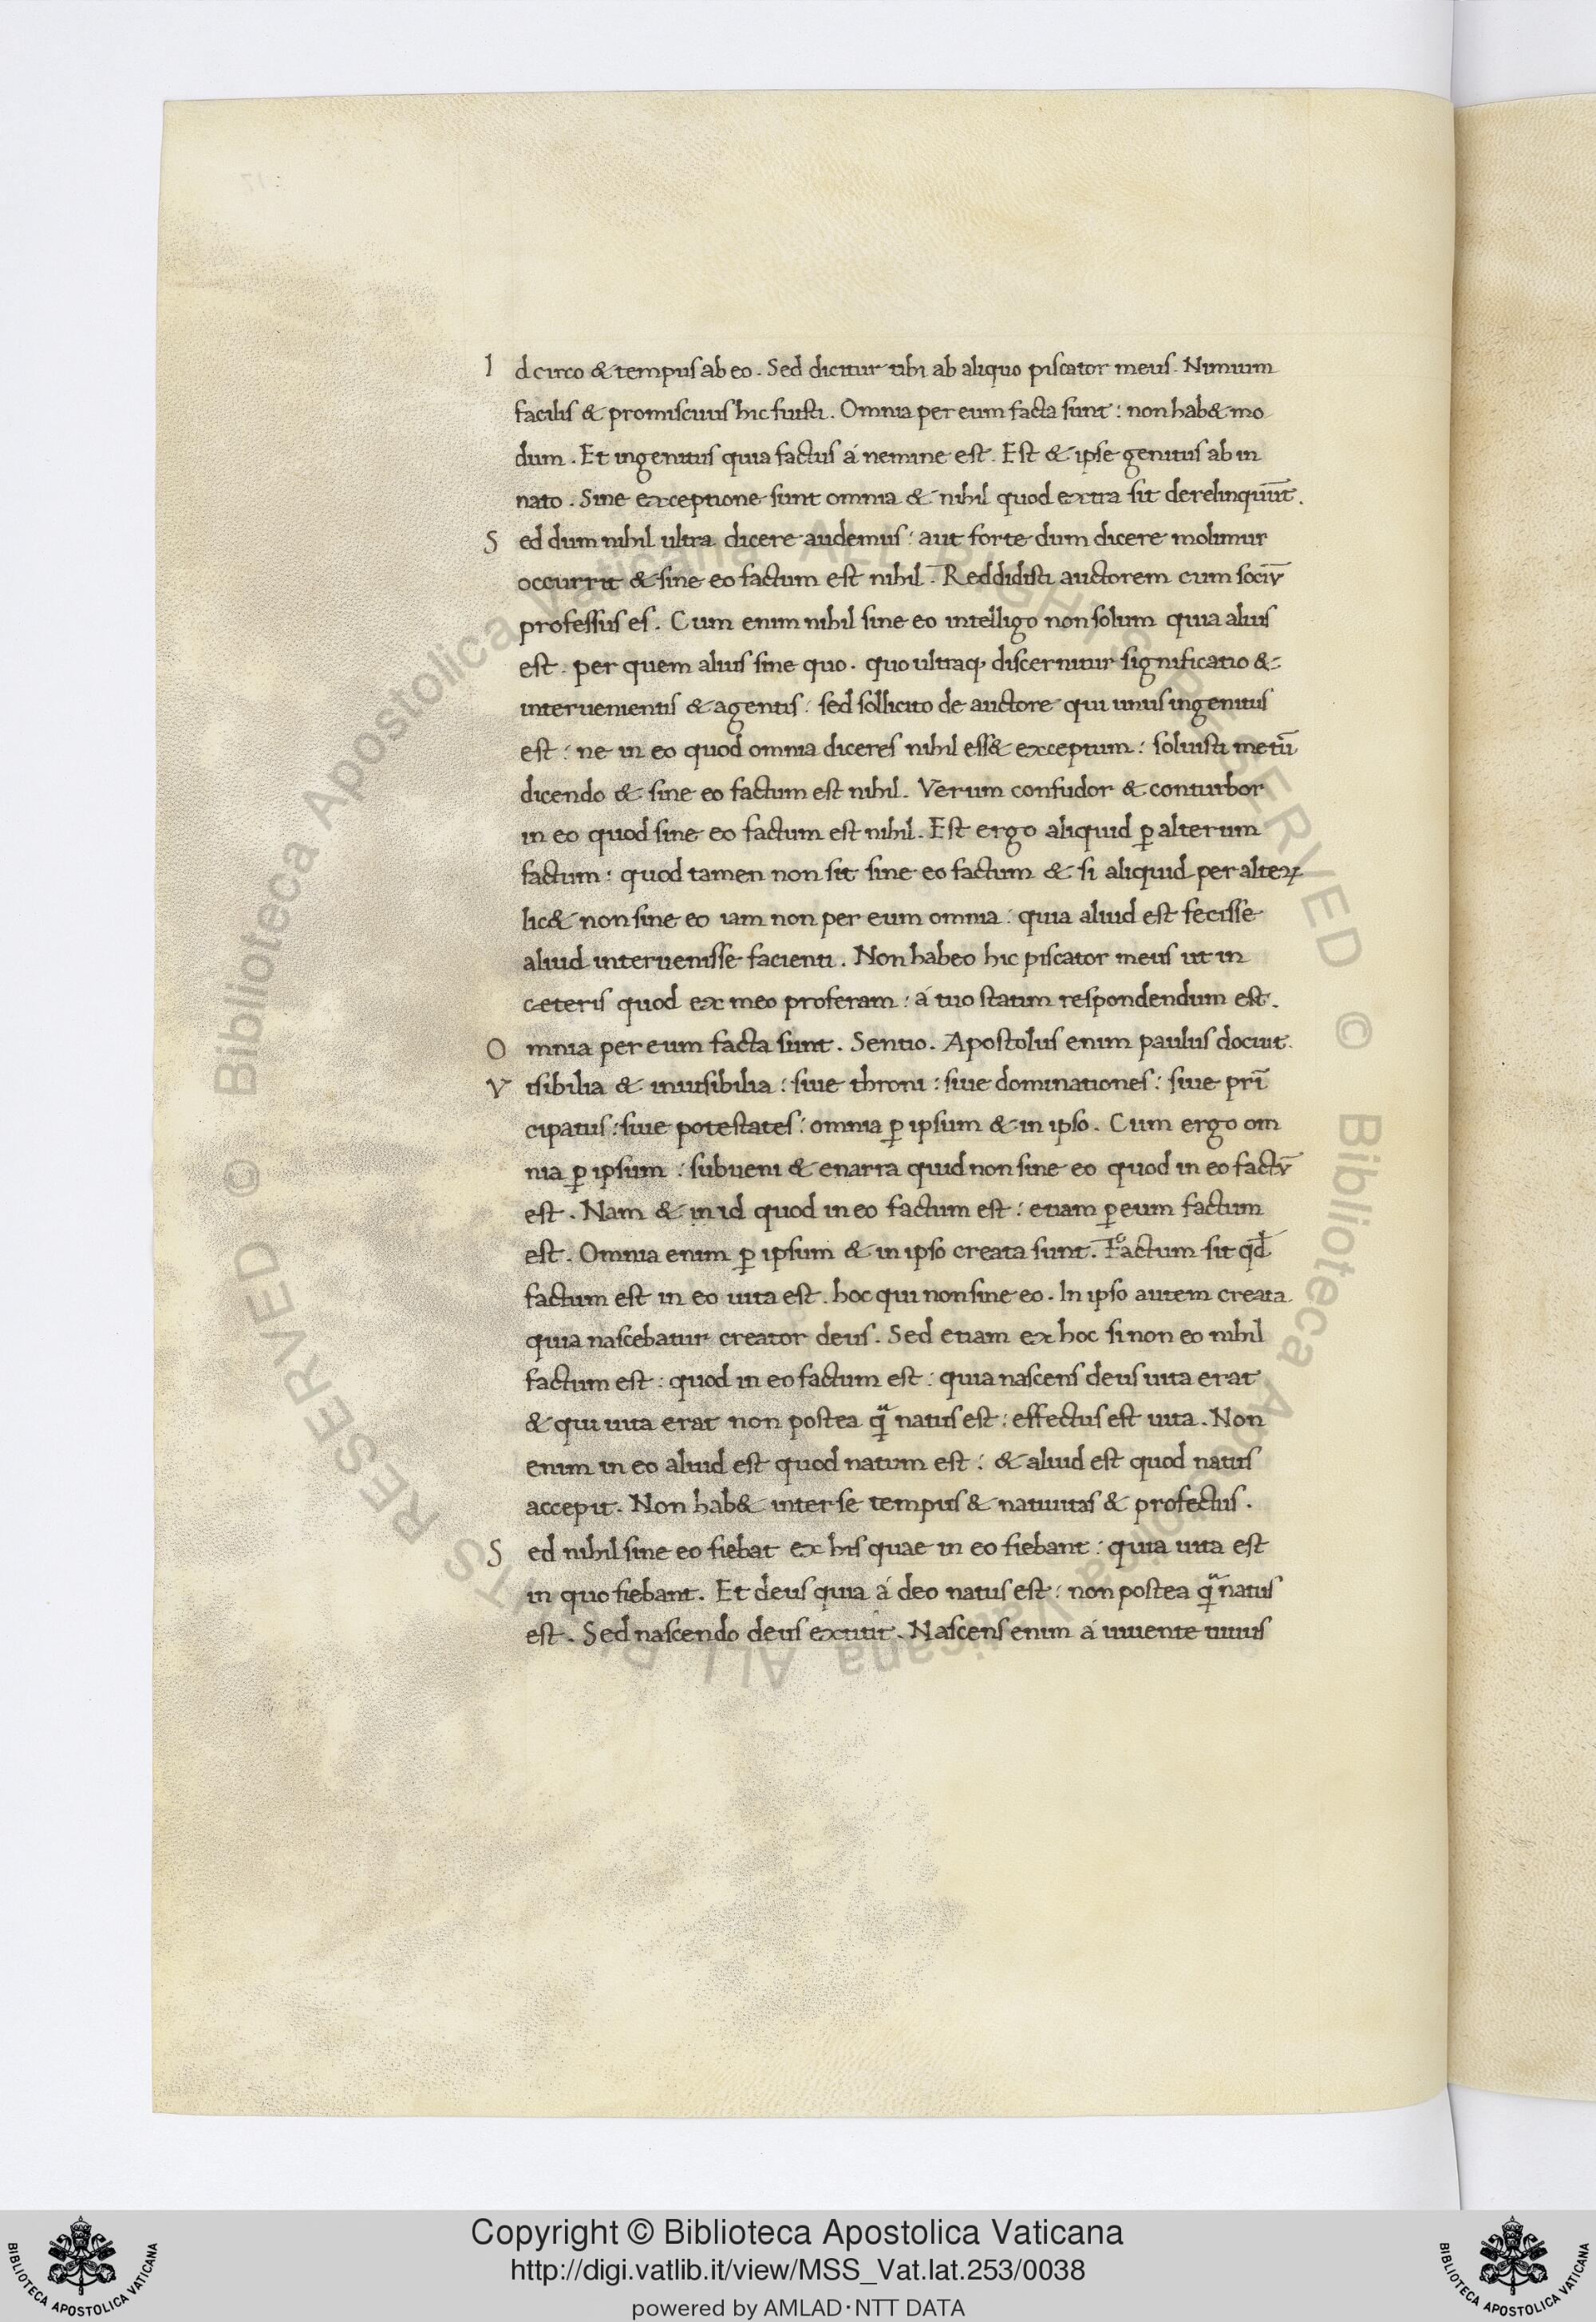 I d circo & tempus ab eo. Sed dicitur tibi ab aliquo piscator meus. Nimium
facilis & promiscuus hic fuisti. Omnia per eum facta sunt: non hab& mo
dum. Et ingenitus quia factus á nemine est. Est & ipse genitus ab in
nato. Sine exceptione sunt omnia & nihil quod extra sit derelinquūt.
S ed dum nihil ultra dicere audemus: aut forte dum dicere molimur
occurrit & sine eo factum est nihil. Reddidisti auctorem cum sociū
professus es. Cum enim nihil sine eo intelligo non solum quia alius
est. per quem alius sine quo. quo ultraq; discernitur significatio &
interuenientis & agentis: sed sollicito de auctore qui unus ingenitus
est: ne in eo quod omnia diceres nihil ess& exceptum: soluisti metū
dicendo & sine eo factum est nihil. Verum confudor & conturbor
in eo quod sine eo factum est nihil. Est ergo aliquid ꝑ alterum
factum: quod tamen non sit sine eo factum & si aliquid per alteꝝ
lic& non sine eo iam non per eum omnia: quia aliud est fecisse
aliud interuenisse facienti. Non habeo hic piscator meus ut in
ceteris quod ex meo proferam: á tuo statim respondendum est.
O mnia per eum facta sunt. Sentio. Apostolus enim paulus docuit.
V isibilia & inuisibilia: siue throni: siue dominationes: siue prī
cipatus: siue potestates: omnia ꝑ ipsum & in ipso. Cum ergo om
nia ꝑ ipsum: subueni & enarra quid non sine eo quod in eo factū
est. Nam & in id quod in eo factum est: etiam ꝑ eum factum
est. Omnia enim ꝑ ipsum & in ipso creata sunt. Factum sit qđ
factum est in eo uita est. hoc qui non sine eo. In ipso autem creata
quia nascebatur creator deus. Sed etiam ex hoc si non eo nihil
factum est: quod in eo factum est: quia nascens deus uita erat
& qui uita erat non postea qᷓ natus est: effectus est uita. Non
enim in eo aliud est quod natum est: & aliud est quod natus
accepit. Non hab& inter se tempus & natiuitas & profectus.
S ed nihil sine eo fiebat ex his quae in eo fiebant: quia uita est
in quo fiebant. Et deus quia á deo natus est: non postea qᷓ natus
est. Sed nascendo deus extitit. Nascens enim á uiuente uiuus
Copyright © Biblioteca Apostolica Vaticana
http://digi.vatlib.it/view/MSS_Vat.lat.253/0038
powered by AMLAD·NTT DATA